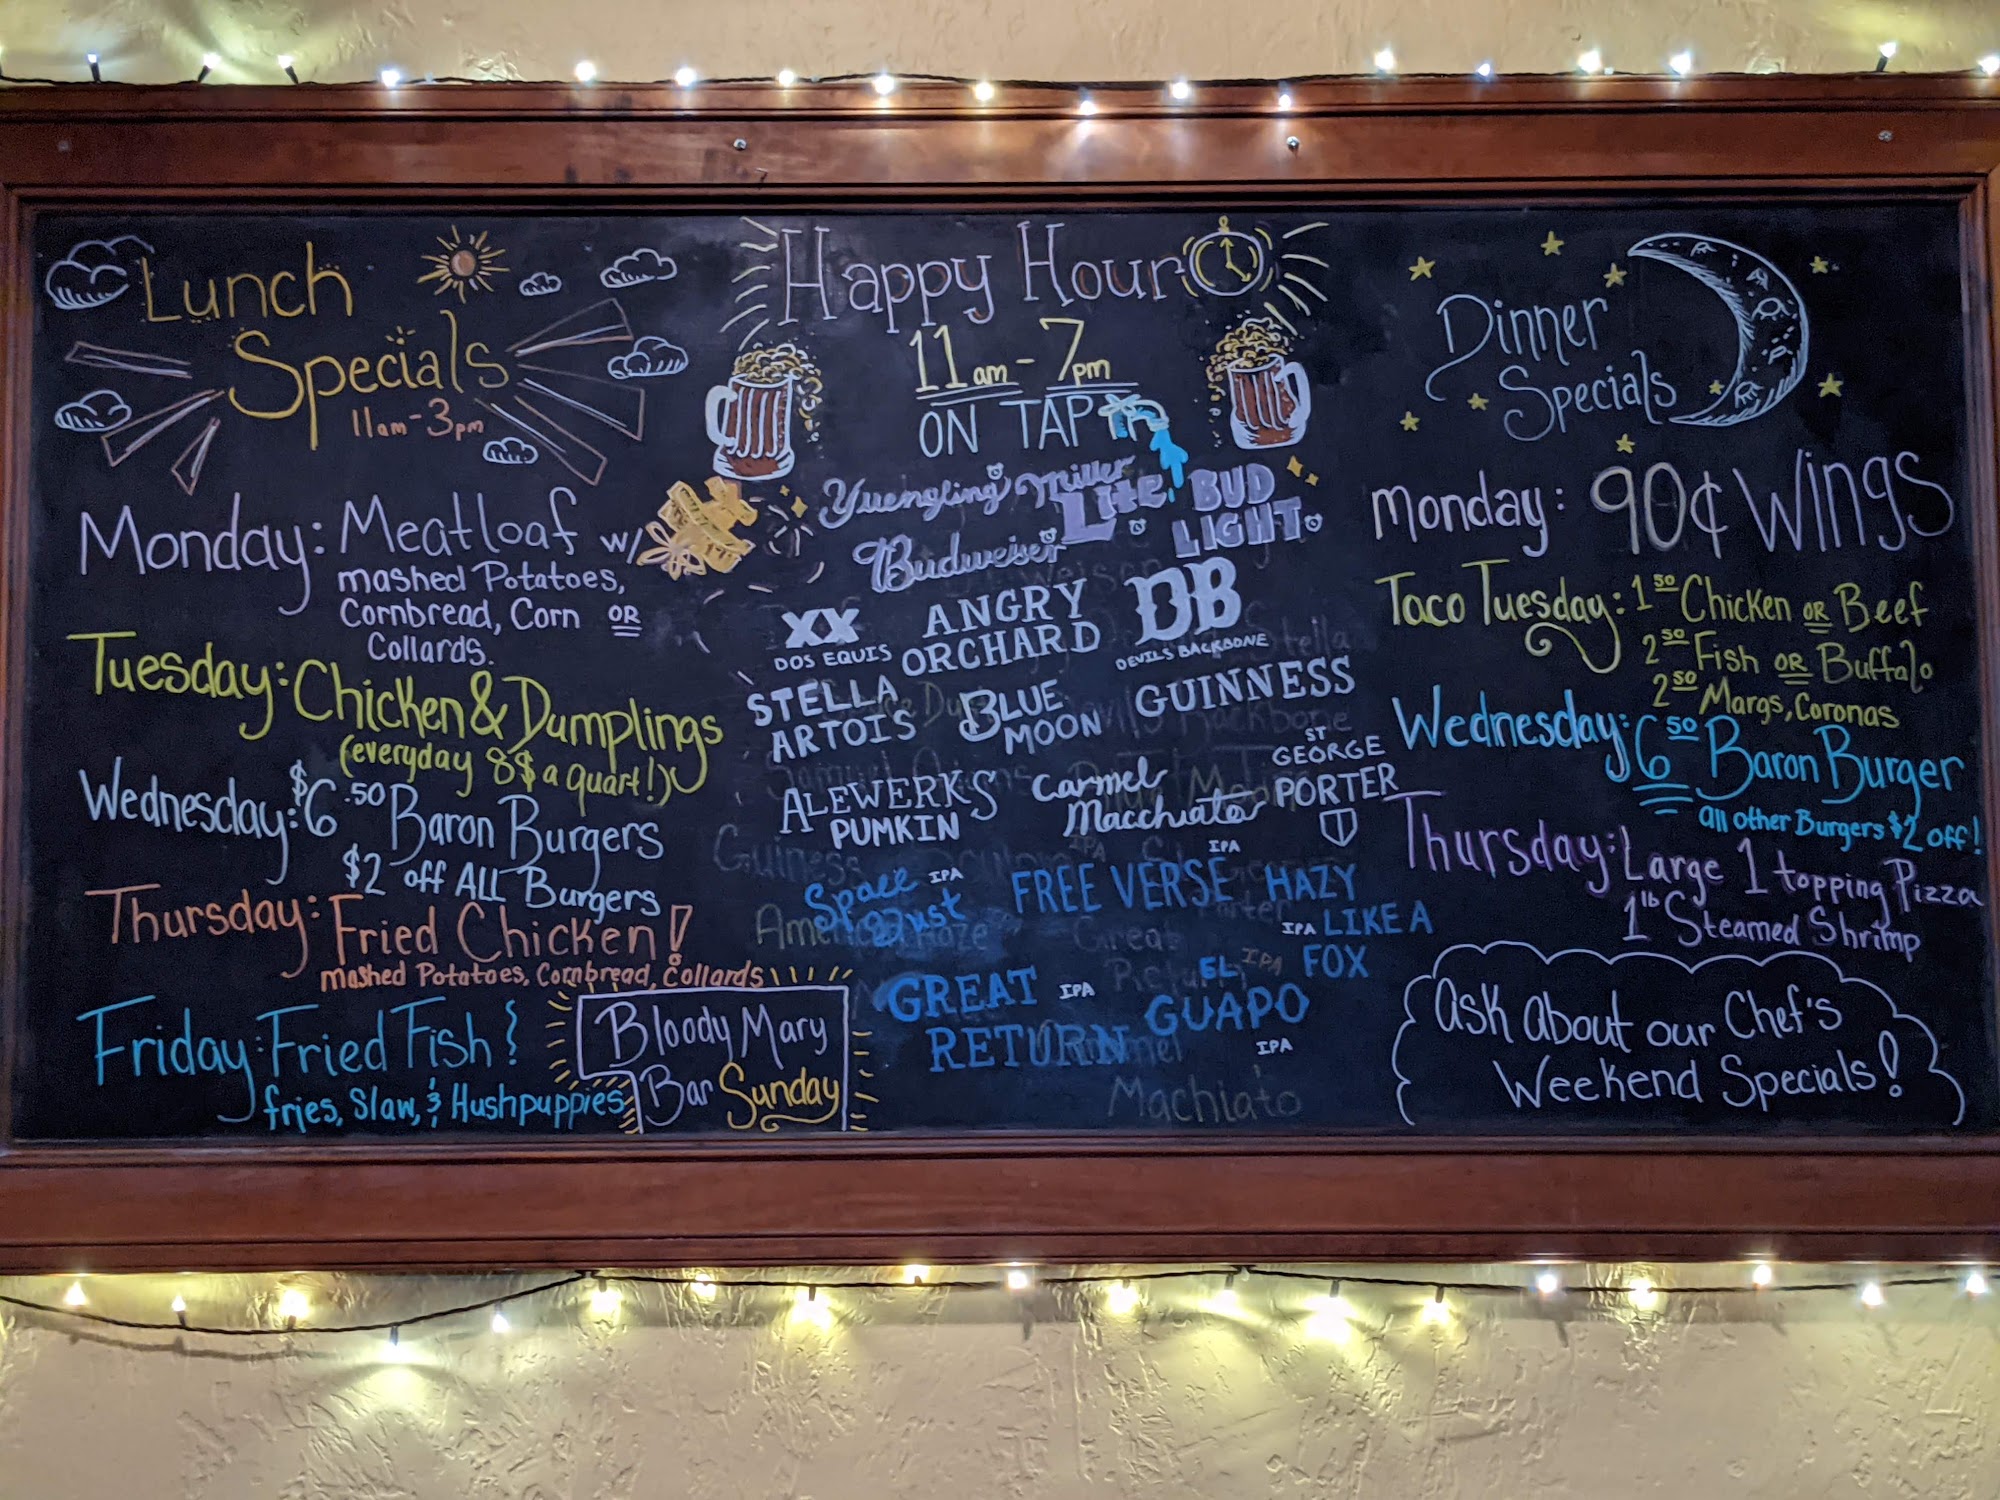 Lunch
Specials
11am-3pm
Monday: Meatloaf w/
mashed Potatoes,
Cornbread, Corn OR
Collards.
Tuesday: Chicken & Dumplings
(everyday 8$ a quart!)
Wednesday: $6.50 Baron Burgers
$2 off ALL Burgers
Thursday: Fried Chicken!
mashed Potatoes, Cornbread, Collards
Friday: Fried Fish!
fries, Slaw, & Hushpuppies
Bloody Mary
Bar Sunday
Happy Hour
11am - 7pm
ON TAP
Yuengling Miller Lite BUD LIGHT
Budweiser
XX
DOS EQUIS
ANGRY
ORCHARD
DB
DEVILS BACKBONE
STELLA
ARTOIS
BLUE
MOON
GUINNESS
ALEWERKS
PUMKIN
Carmel
Macchiato
ST
GEORGE
PORTER
Space IPA
Dust
FREE VERSE IPA
HAZY
LIKE A IPA
FOX
GREAT IPA
RETURN
EL
GUAPO
IPA
Guiness
Great
Return IPA
Machiato
Dinner
Specials
Monday: 90¢ Wings
Taco Tuesday: 1 50 Chicken OR Beef
2 50 Fish OR Buffalo
2 50 Margs, Coronas
Wednesday: 6 50 Baron Burger
all other Burgers $2 off!
Thursday: Large 1 topping Pizza
1 lb Steamed Shrimp
Ask about our Chef's
Weekend Specials!